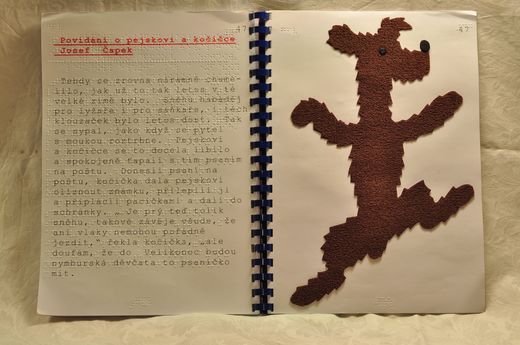 47
Povídání o pejskovi a kočičce
Josef Čapek
Tehdy se zrovna náramně chume-
lilo, jak už to tak letos v té
velké zimě bylo. Sněhu habaděj
pro lyžaře i pro sáňkaře, i těch
klouzaček bylo letos dost. Tak
se sypal, jako když se pytel
s moukou roztrhne. Pejskovi
a kočičce se to docela líbilo
a spokojeně ťapali s tím psaním na
poštu. Donesli psaní na
poštu, kočička dala pejskovi
olíznout známku, přilepili ji
a připlácli pacičkami a dali do
schránky. „Je prý teď tolik
sněhu, takové závěje všude, že
ani vlaky nemohou pořádně
jezdit," řekla kočička, „ale
doufám, že do Velikonoc budou
nymburská děvčata to psaníčko
mít.
47